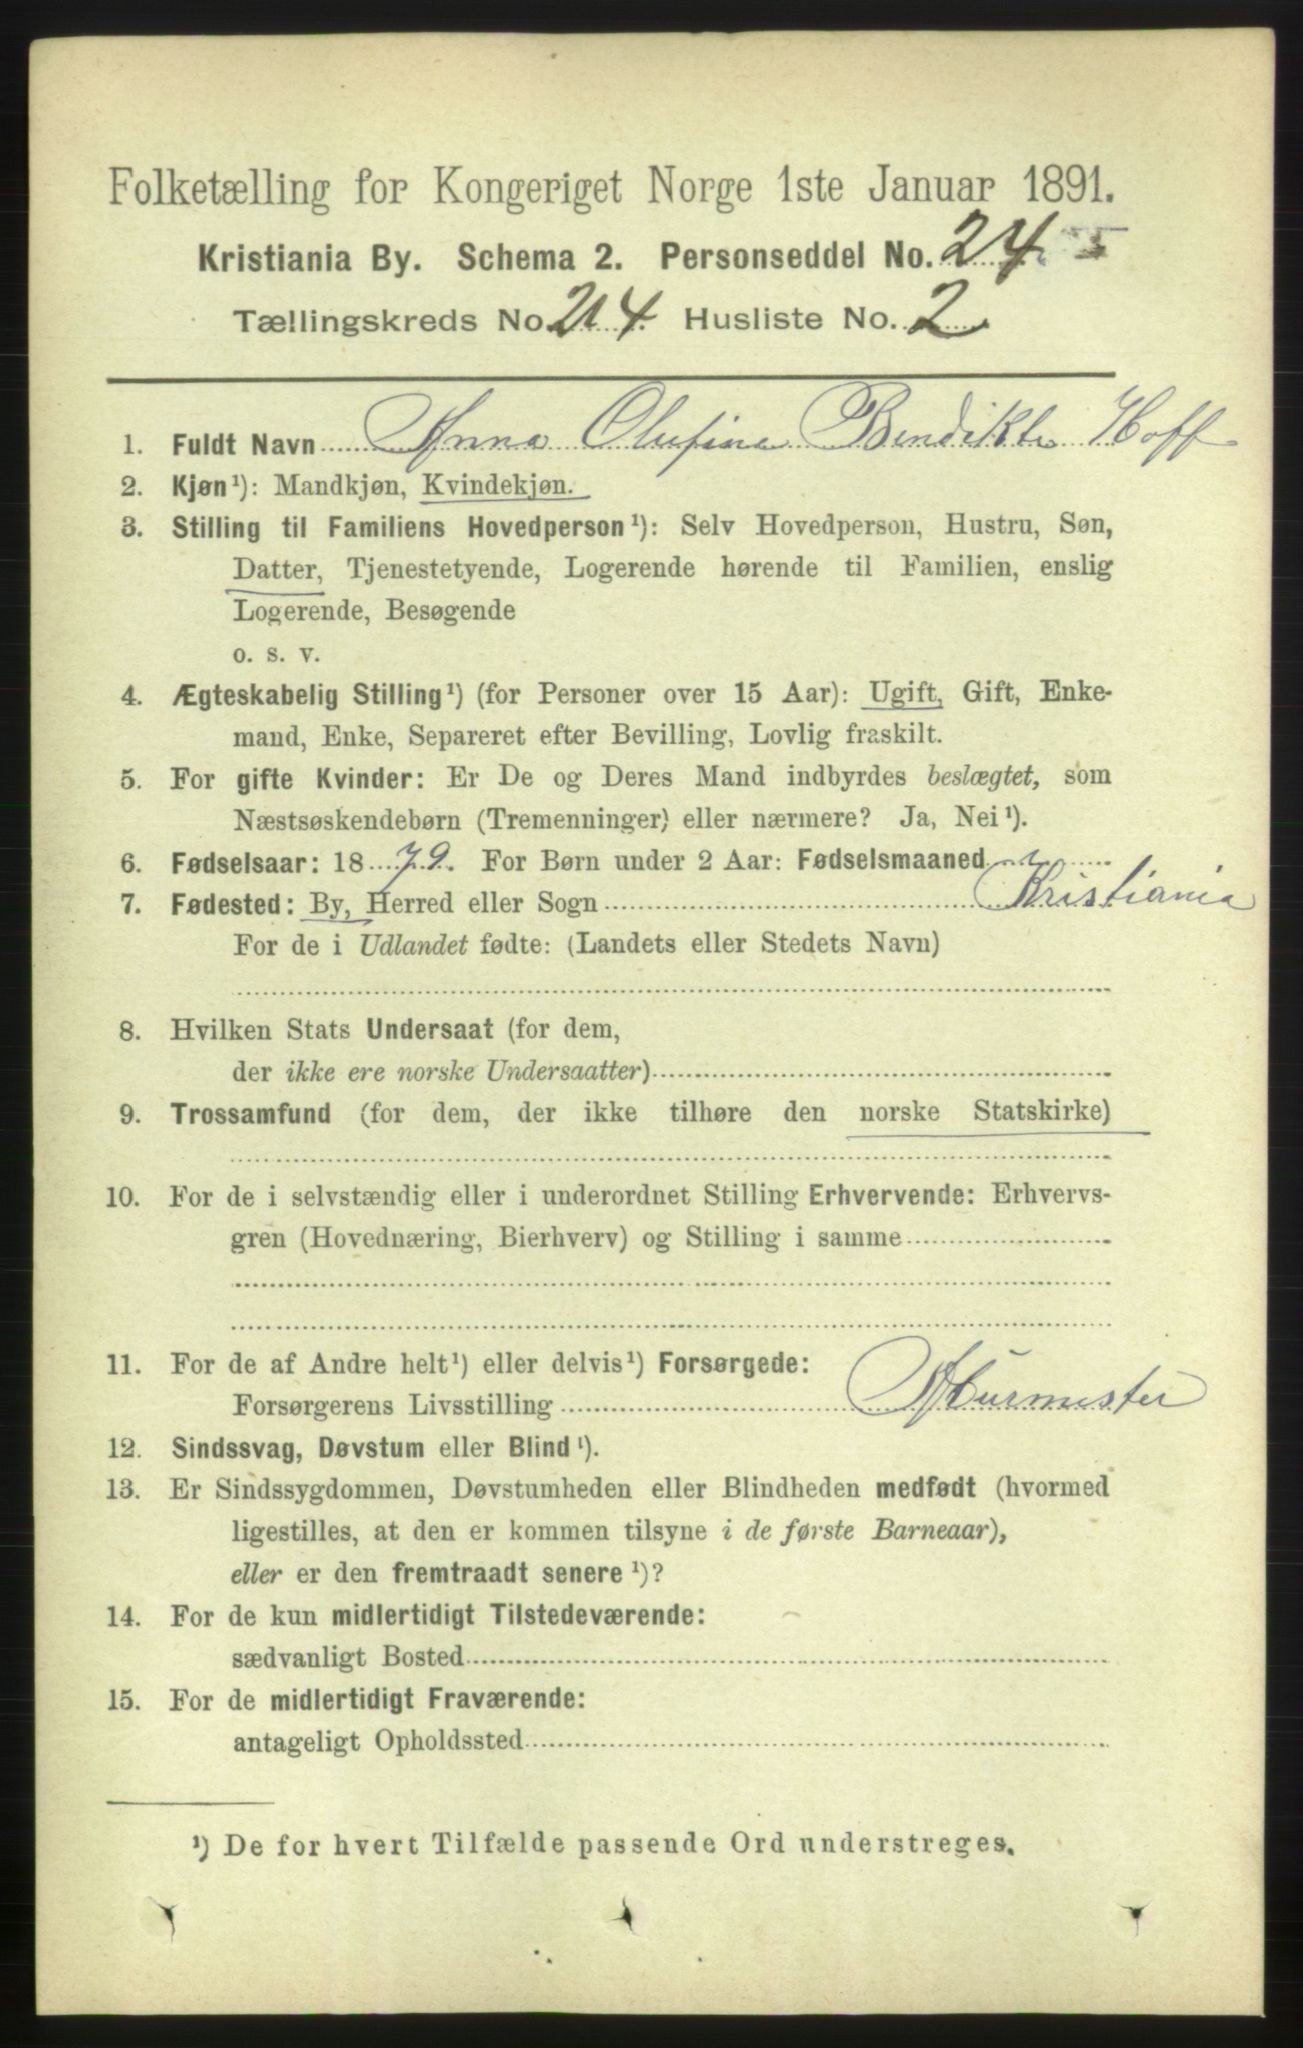 Folketælling for Kongeriget Norge 1ste Januar 1891.
Kristiania By. Schema 2. Personseddel No. 24
Tællingskreds No. 214. Husliste No. 2
1. Fuldt Navn Anna Olufina Bendikte Hoff
2. Kjøn¹): Mandkjøn, Kvindekjøn.
3. Stilling til Familiens Hovedperson¹): Selv Hovedperson, Hustru, Søn,
Datter, Tjenestetyende, Logerende hørende til Familien, enslig
Logerende, Besøgende
o. s. v.
4. Ægteskabelig Stilling¹) (for Personer over 15 Aar): Ugift, Gift, Enke-
mand, Enke, Separeret efter Bevilling, Lovlig fraskilt.
5. For gifte Kvinder: Er De og Deres Mand indbyrdes beslægtet, som
Næstsøskendebørn (Tremenninger) eller nærmere? Ja, Nei¹).
6. Fødselsaar: 1879. For Børn under 2 Aar: Fødselsmaaned
7. Fødested: By, Herred eller Sogn Kristiania
For de i Udlandet fødte: (Landets eller Stedets Navn)
8. Hvilken Stats Undersaat (for dem,
der ikke ere norske Undersaatter)
9. Trossamfund (for dem, der ikke tilhøre den norske Statskirke)
10. For de i selvstændig eller i underordnet Stilling Erhvervende: Erhvervs-
gren (Hovednæring, Bierhverv) og Stilling i samme
11. For de af Andre helt¹) eller delvis¹) Forsørgede:
Forsørgerens Livsstilling Murmester
12. Sindssvag, Døvstum eller Blind¹).
13. Er Sindssygdommen, Døvstumheden eller Blindheden medfødt (hvormed
ligestilles, at den er kommen tilsyne i de første Barneaar),
eller er den fremtraadt senere¹)?
14. For de kun midlertidigt Tilstedeværende:
sædvanligt Bosted
15. For de midlertidigt Fraværende:
antageligt Opholdssted
¹) De for hvert Tilfælde passende Ord understreges.